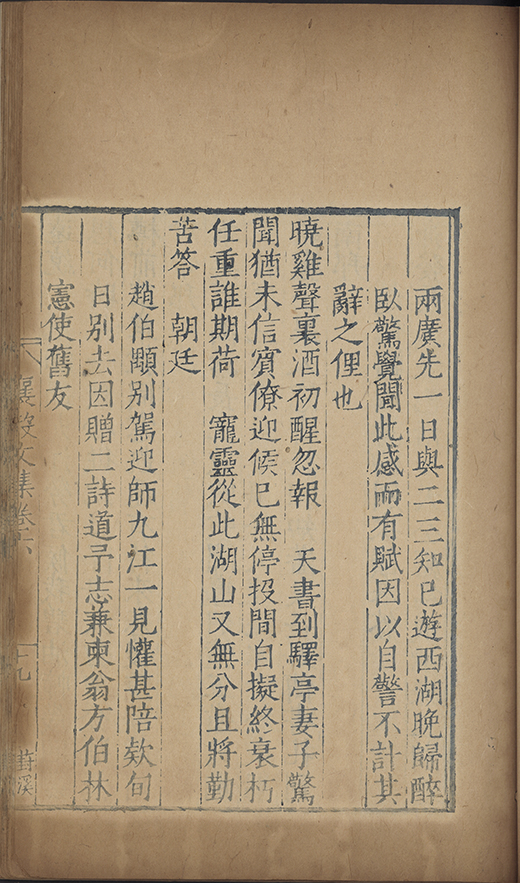 兩廣先一日與二三知已遊西湖晚歸醉
臥驚覺聞此感而有賦因以自警不計其
辭之俚也
曉雞聲裏酒初醒忽報 天書到驛亭妻子驚
聞猶未信賓僚迎候已無停投閒自擬終衰朽
任重誰期荷 寵靈從此湖山又無分且將勤
苦答 朝廷
趙伯顒别駕迎師九江一見懽甚陪欵旬
日别去因贈二詩道予志兼柬翁方伯林
憲使舊友
襄毅文集卷六
十九